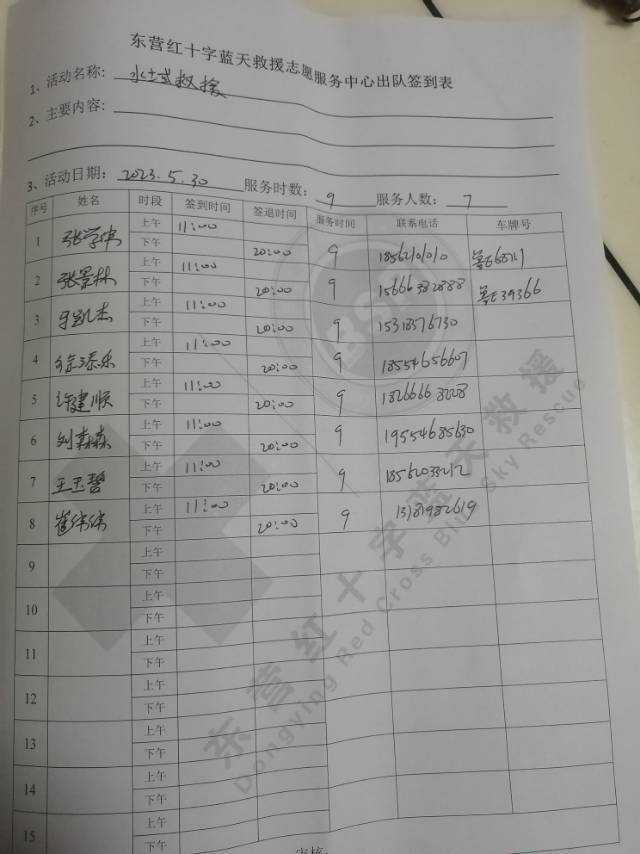 东营红十字蓝天救援志愿服务中心出队签到表
1、活动名称: 水域救援
2、主要内容:
3、活动日期: 2023.5.30 服务时数: 9 服务人数: 7
序号 姓名 时段 签到时间 签退时间 服务时间 联系电话 车牌号
1 张学伟 上午 11:00
下午 20:00 9
2 张景林 上午 11:00
下午 20:00 9 15666382888
3 于凯杰 上午 11:00
下午 20:00 9 15318576730
4 徐添乐 上午 11:00
下午 20:00 9 18554656607
5 许建顺 上午 11:00
下午 20:00 9 18266668228
6 刘森森 上午 11:00
下午 20:00 9 19554685630
7 王玉碧 上午 11:00
下午 20:00 9 18562033212
8 崔伟伟 上午 11:00
下午 20:00 9 13181982619
9 上午
下午
10 上午
下午
11 上午
下午
12 上午
下午
13 上午
下午
14 上午
下午
15 上午
下午
东营红十字蓝天救援
Dongying Red Cross Blue Sky Rescue